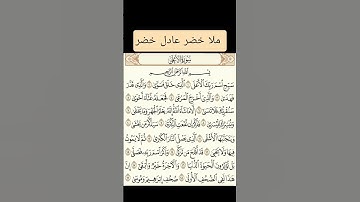 ملا خضر عادل خضر
سُورَةُ الأَعْلَى
بِسْمِ اللَّهِ الرَّحْمَٰنِ الرَّحِيمِ
سَبِّحِ اسْمَ رَبِّكَ الْأَعْلَى ١ الَّذِي خَلَقَ فَسَوَّىٰ ٢ وَالَّذِي قَدَّرَ
فَهَدَىٰ ٣ وَالَّذِي أَخْرَجَ الْمَرْعَىٰ ٤ فَجَعَلَهُ غُثَاءً أَحْوَىٰ ٥
سَنُقْرِئُكَ فَلَا تَنسَىٰ ٦ إِلَّا مَا شَاءَ اللَّهُ إِنَّهُ يَعْلَمُ الْجَهْرَ وَمَا يَخْفَىٰ ٧
وَنُيَسِّرُكَ لِلْيُسْرَىٰ ٨ فَذَكِّرْ إِن نَّفَعَتِ الذِّكْرَىٰ ٩ سَيَذَّكَّرُ مَن يَخْشَىٰ ١٠
وَيَتَجَنَّبُهَا الْأَشْقَى ١١ الَّذِي يَصْلَى النَّارَ الْكُبْرَىٰ ١٢ ثُمَّ لَا يَمُوتُ
فِيهَا وَلَا يَحْيَىٰ ١٣ قَدْ أَفْلَحَ مَن تَزَكَّىٰ ١٤ وَذَكَرَ اسْمَ رَبِّهِ فَصَلَّىٰ ١٥
بَلْ تُؤْثِرُونَ الْحَيَوٰةَ الدُّنْيَا ١٦ وَالْآخِرَةُ خَيْرٌ وَأَبْقَىٰ ١٧ إِنَّ
هَٰذَا لَفِي الصُّحُفِ الْأُولَىٰ ١٨ صُحُفِ إِبْرَاهِيمَ وَمُوسَىٰ ١٩